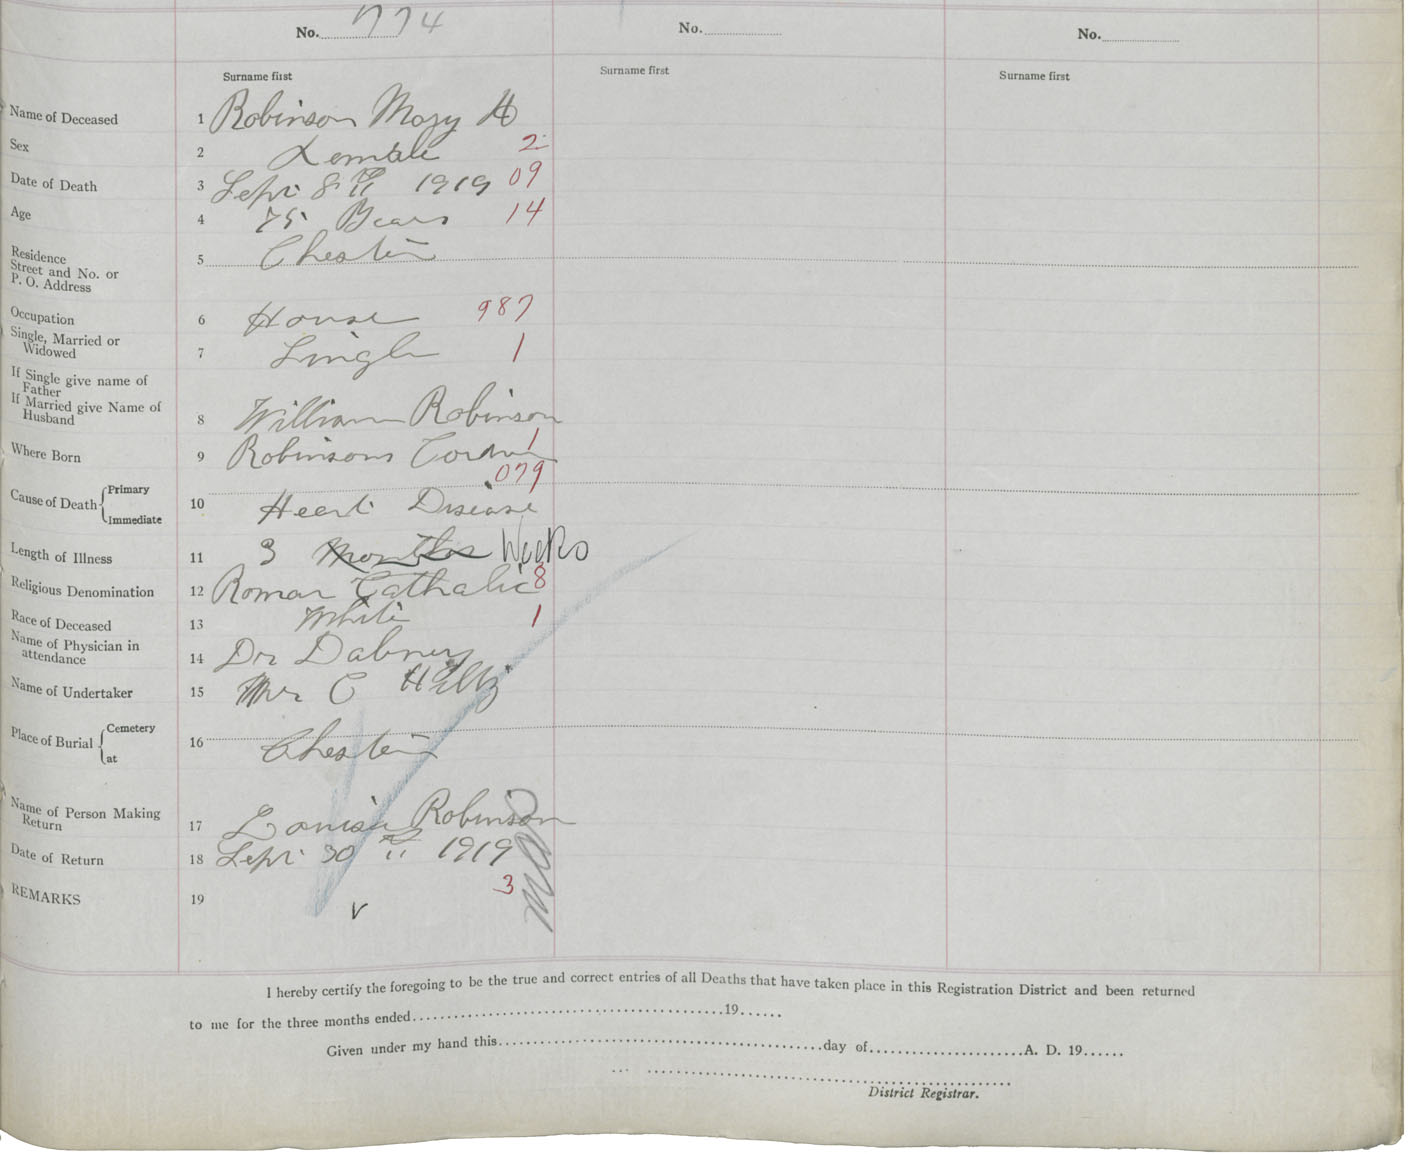 No. 774 No. No.
Surname first Surname first Surname first
Name of Deceased 1 Robinson Mary H
Sex 2 Female 2
Date of Death 3 Sept 8th 1919 09
Age 4 75 Years 14
Residence
Street and No. or
P. O. Address
5 Chester
Occupation 6 House 987
Single, Married or
Widowed
7 Single 1
If Single give name of
Father
If Married give Name of
Husband
8 William Robinson
Where Born 9 Robinsons Corner 1
079
Cause of Death Primary
Immediate
10 Heart Disease
Length of Illness 11 3 Months Weeks
Religious Denomination 12 Roman Catholic 8
Race of Deceased 13 White 1
Name of Physician in
attendance
14 Dr Dabney
Name of Undertaker 15 Mr C Hiltz
Place of Burial Cemetery
at
16 Chester
Name of Person Making
Return
17 Louisa Robinson
Date of Return 18 Sept 30th 1919
REMARKS 19 3
I hereby certify the foregoing to be the true and correct entries of all Deaths that have taken place in this Registration District and been returned
to me for the three months ended 19
Given under my hand this day of A. D. 19
District Registrar.